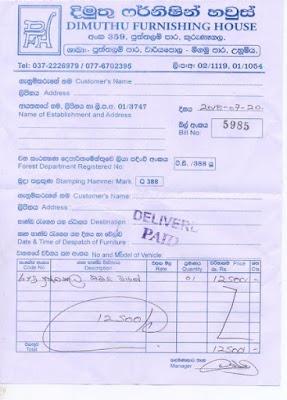 දිමුතු ෆර්නිෂින් හවුස්
DIMUTHU FURNISHING HOUSE
අංක 359, පුත්තලම් පාර, කුරුණෑගල.
ශාඛාව- පුත්තලම් පාර, වාරියපොල - මීගමු පාර,
Tel: 037-2226979 / 077-6702395
ලි.ප.අං: 02/1119, 01/1054
ගැනුම්කරුගේ නම Customer's Name
ලිපිනය Address
ආයතනයේ නම, ලිපිනය හා ලි.ප.අ. 01/3747
Name of Establishment and Address
දිනය
බිල් අංකය
Bill No: 5985
වන සංරක්ෂණ දෙපාර්තමේන්තුවේ ලියා පදිංචි අංකය
Forest Department Registered No:
ටී.ඩී. /388 යූ
මුද්‍රා පලකුණ Stamping Hammer Mark Q 388
ගැනුම්කරුගේ නම Customer's Name
ලිපිනය Address
භාණ්ඩ රැගෙන යන ස්ථානය Destination
භාණ්ඩ රැගෙන යන දිනය හා වේලාව
Date & Time of Despatch of Furniture
DELIVERE
PAID
වාහනයේ වර්ගය සහ අංකය No and Model of Vehicle:
Code No
Description
Rate
Quantity
Rs.
Cts
01 12500 -
12500/
Total 12500 -
Manager